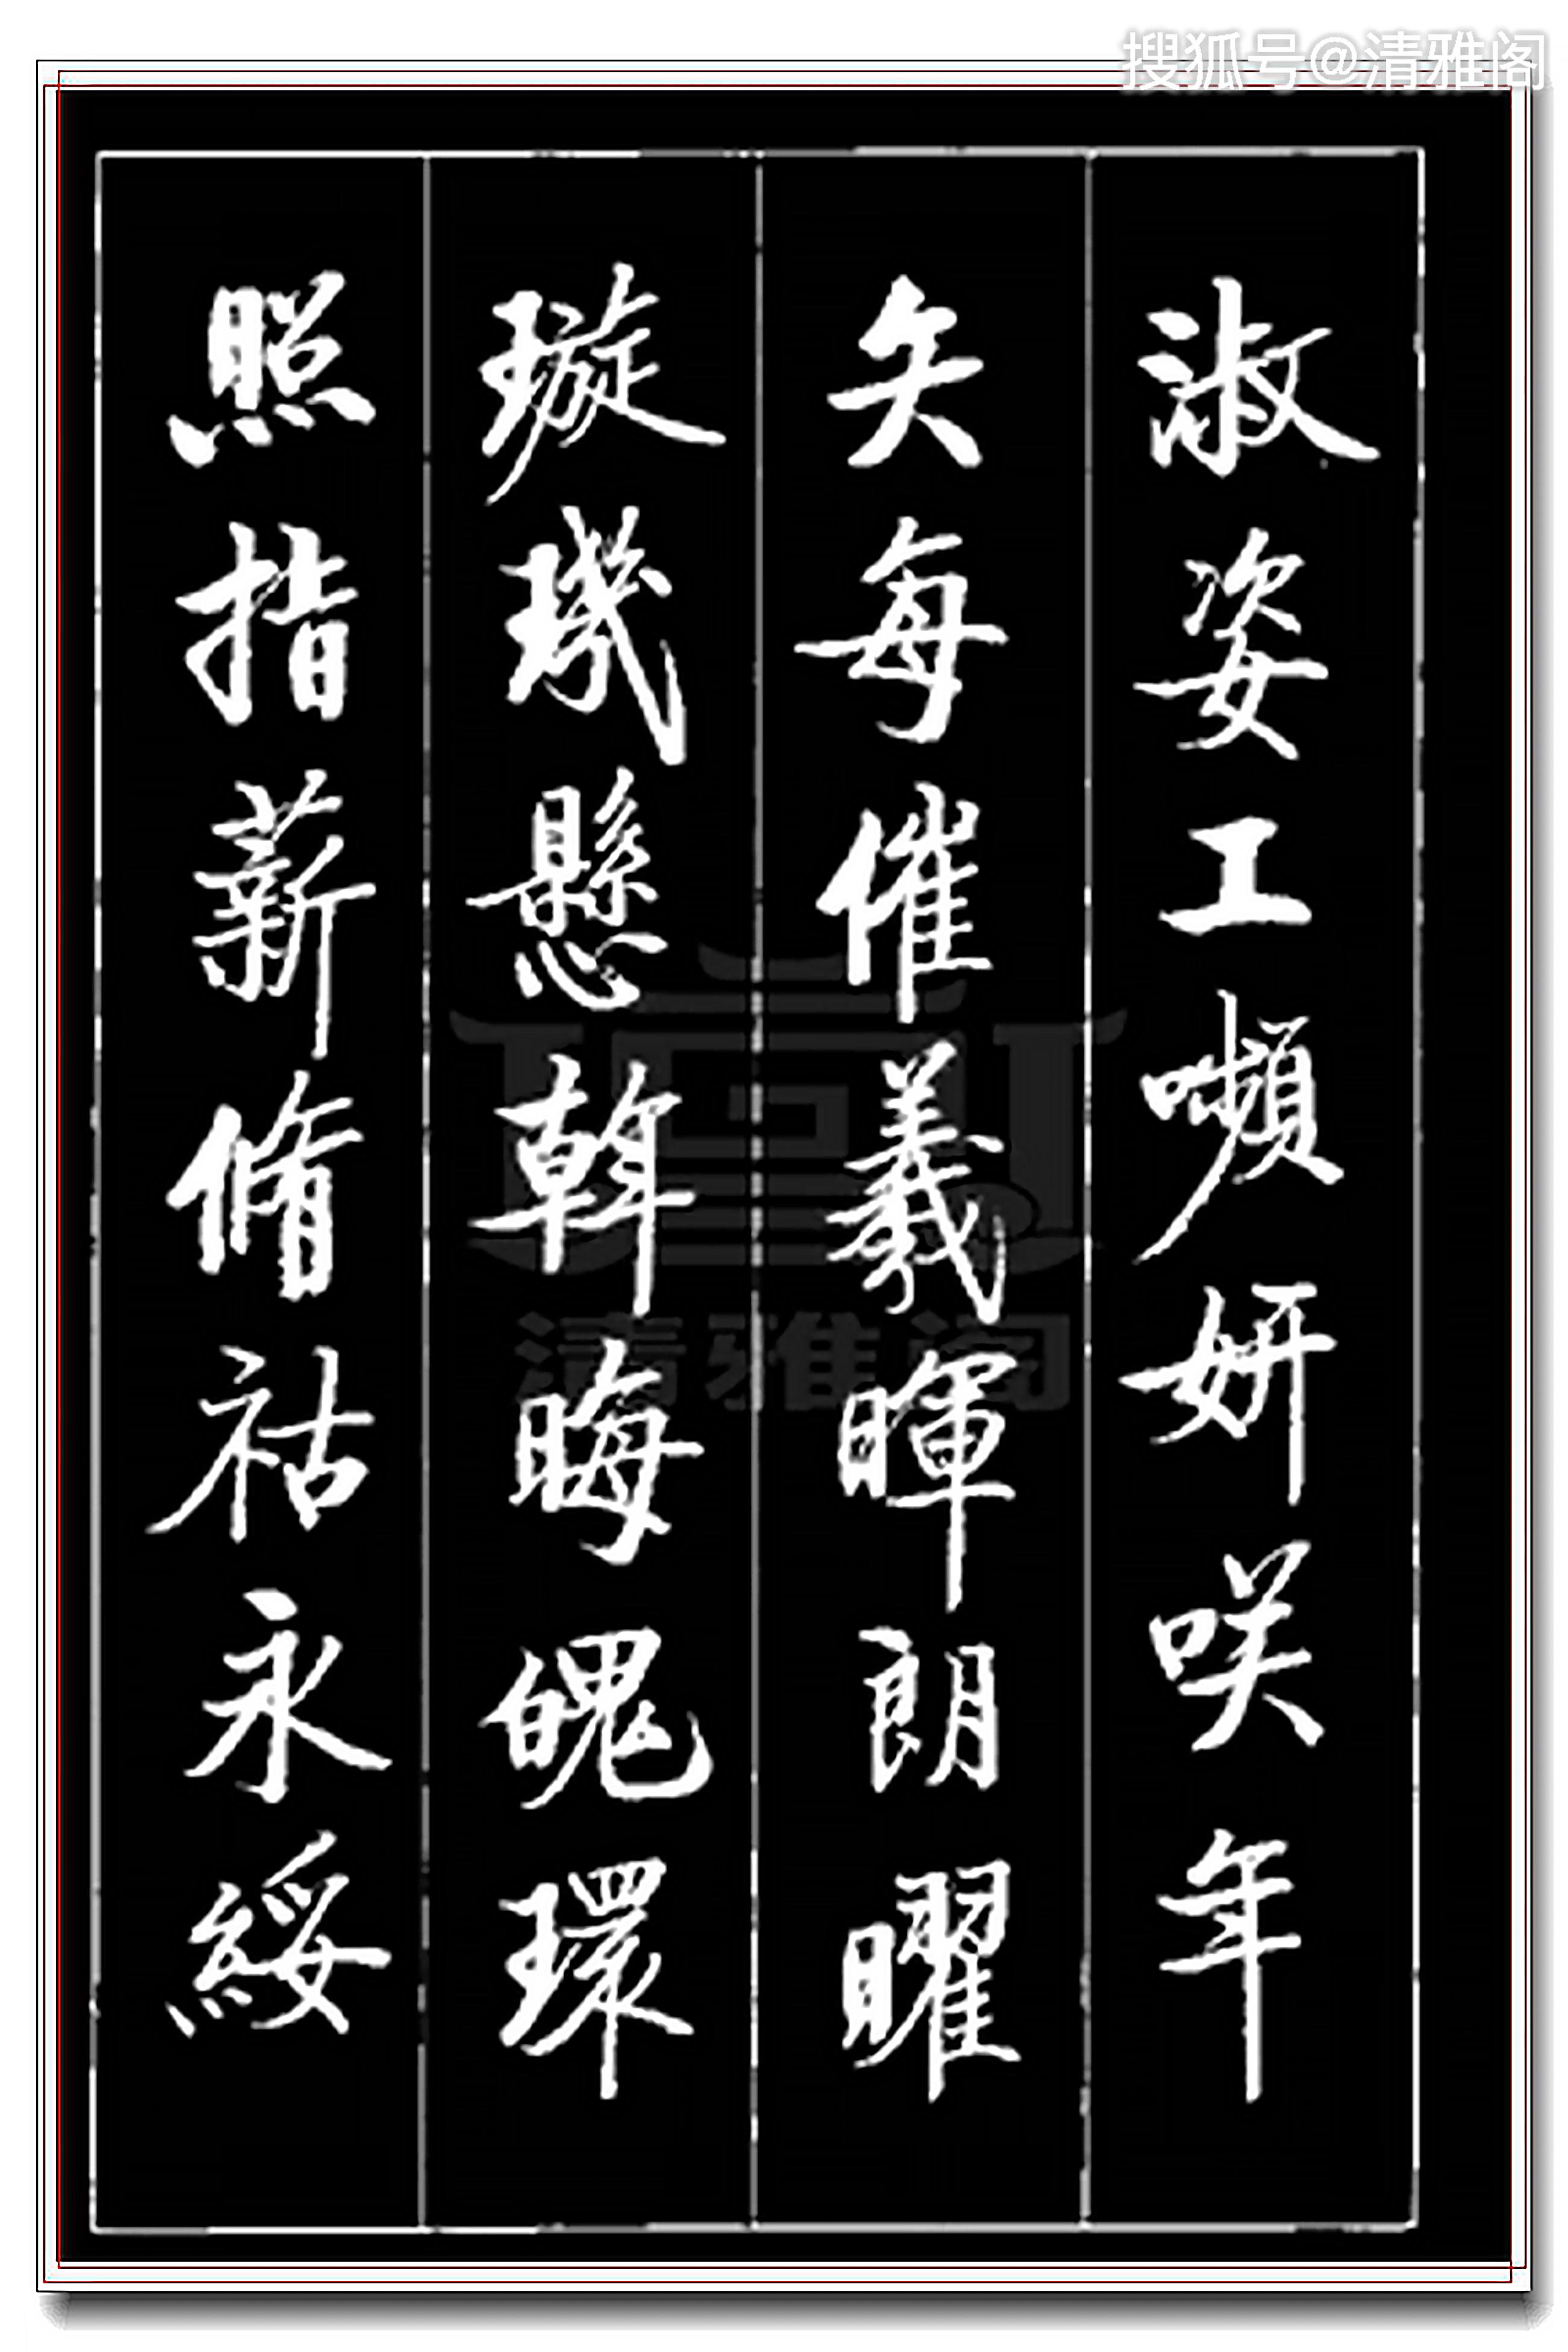 搜狐号@清雅阁
淑姿工嚬妍咲年
矢每催羲暉朗曜
璇璣懸斡晦魄環
照指薪脩祜永綏
清雅阁